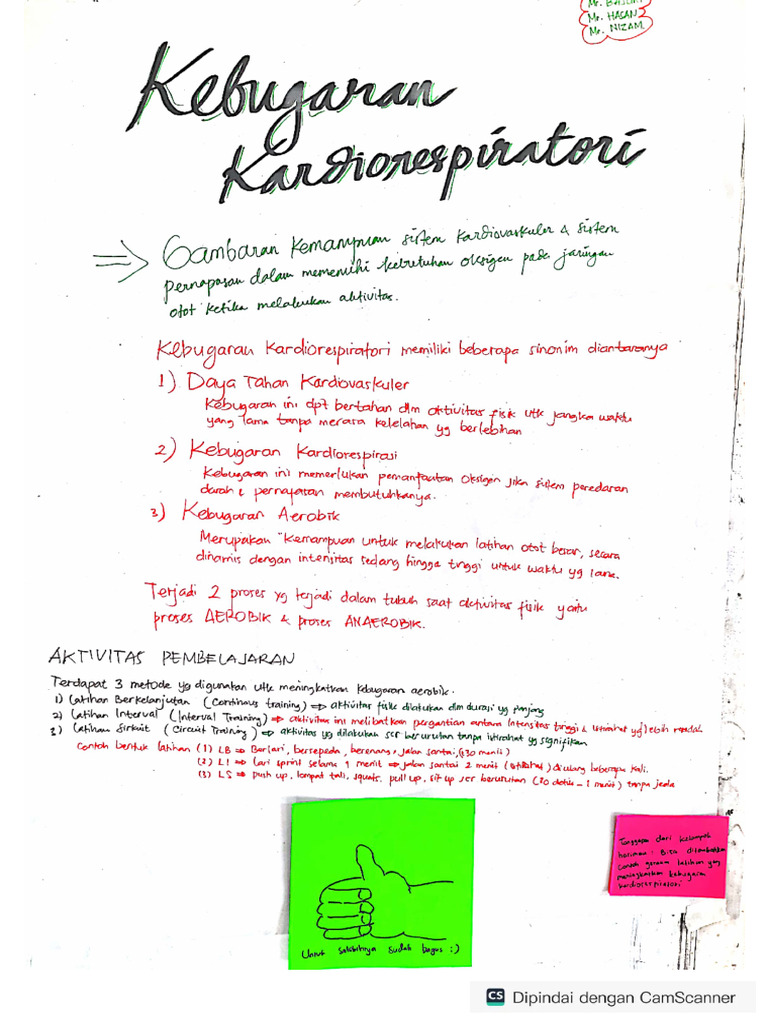 Mr. HASAN
Mr. NIZAM
Kebugaran
Kardiorespiratori
⇒ Gambaran Kemampuan sistem Kardiovaskuler & sistem
pernapasan dalam memenuhi kebutuhan oksigen pada jaringan
otot ketika melakukan aktivitas.
Kebugaran Kardiorespiratori memiliki beberapa sinonim diantaranya
1) Daya Tahan Kardiovaskuler
Kebugaran ini dpt bertahan dlm aktivitas fisik utk jangka waktu
yang lama tanpa merasa kelelahan yg berlebihan
2) Kebugaran Kardiorespirasi
Kebugaran ini memerlukan pemanfaatan oksigen jika sistem peredaran
darah & pernafasan membutuhkanya.
3) Kebugaran Aerobik
Merupakan "Kemampuan untuk melakukan latihan otot besar, secara
dinamis dengan intensitas sedang hingga tinggi untuk waktu yg lama.
Terjadi 2 proses yg terjadi dalam tubuh saat aktivitas fisik yaitu
proses AEROBIK & proses ANAEROBIK.
AKTIVITAS PEMBELAJARAN
Terdapat 3 metode yg digunakan utk meningkatkan kebugaran aerobik.
1) Latihan Berkelanjutan (Continous training) ⇒ aktivitas fisik dilakukan dlm durasi yg panjang
2) Latihan Interval (Interval Training) ⇒ aktivitas ini melibatkan pergantian antara intensitas tinggi & istirahat yg lebih rendah
3) Latihan Sirkuit (Circuit Training) ⇒ aktivitas yg dilakukan scr berurutan tanpa istirahat yg signifikan
Contoh bentuk latihan (1) LB ⇒ Berlari, bersepeda, berenang, jalan santai, (30 menit)
(2) LI ⇒ lari sprint selama 1 menit ⇒ jalan santai 2 menit (istirahat) diulang beberapa kali.
(3) LS ⇒ push up, lompat tali, squats, pull up, sit up scr berurutan (30 detik - 1 menit) tanpa jeda
Tanggapan dari kelompok
harimau: Bisa ditambahkan
contoh gerakan latihan yang
meningkatkan kebugaran
kardiorespiratori
Untuk sudah bagus :)
CS Dipindai dengan CamScanner